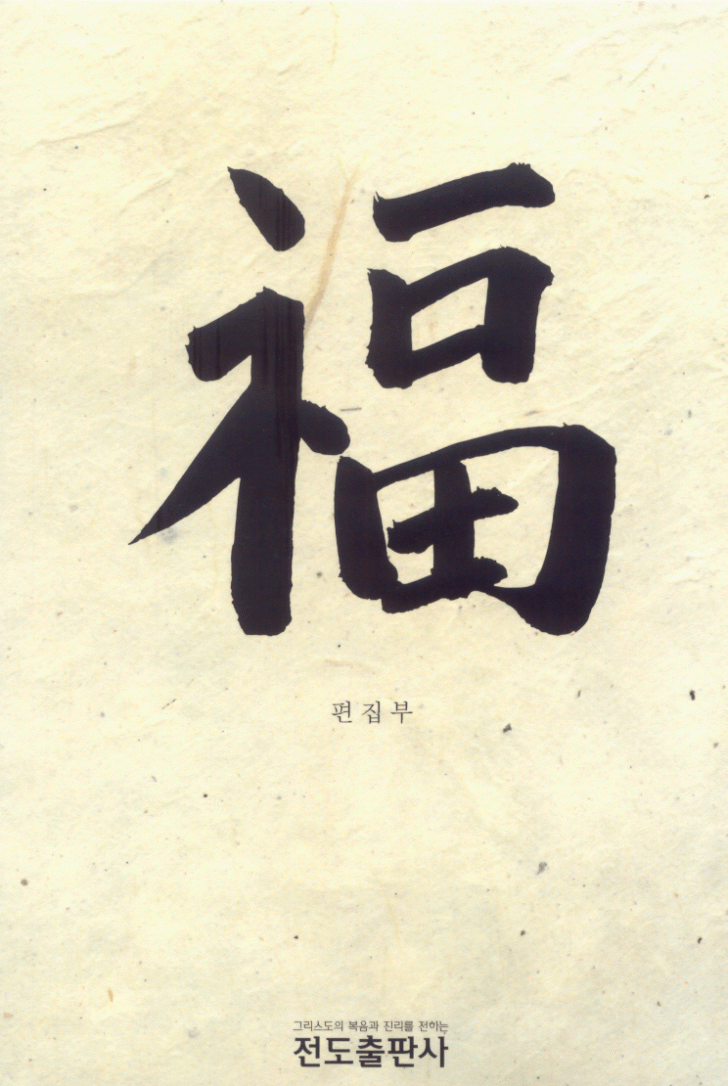 福
편집부
그리스도의 복음과 진리를 전하는
전도출판사